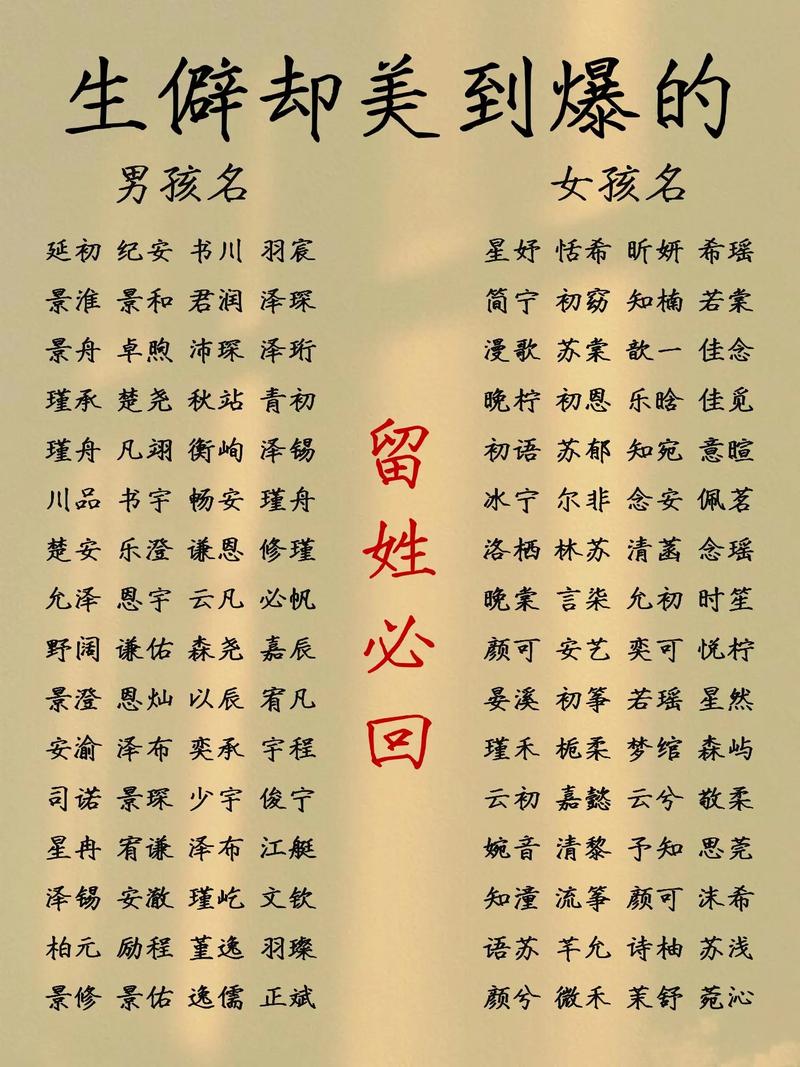 生僻却美到爆的
男孩名
延初 纪安 书川 羽宸
景淮 景和 君润 泽琛
景舟 卓煦 沛琛 泽珩
瑾承 楚尧 秋站 青初
瑾舟 凡翊 衡峋 泽锡
川品 书宇 畅安 瑾舟
楚安 乐澄 谦恩 修瑾
允泽 恩宇 云凡 必帆
野阔 谦佑 森尧 嘉辰
景澄 恩灿 以辰 宥凡
安渝 泽布 奕承 宇程
司诺 景琛 少宇 俊宁
星冉 宥谦 泽布 江艇
泽锡 安澈 瑾屹 文钦
柏元 励程 堇逸 羽璨
景修 景佑 逸儒 正斌
留姓必回
女孩名
星妤 恬希 昕妍 希瑶
简宁 初窈 知楠 若棠
漫歌 苏棠 歆一 佳念
晚柠 初恩 乐晗 佳觅
初语 苏郁 知宛 意暄
冰宁 尔非 念安 佩茗
洛栖 林苏 清菡 念瑶
晚棠 言柒 允初 时笙
颜可 安艺 奕可 悦柠
晏溪 初筝 若瑶 星然
瑾禾 栀柔 梦绾 森屿
云初 嘉懿 云兮 敬柔
婉音 清黎 予知 思莞
知潼 流筝 颜可 沫希
语苏 芊允 诗柚 苏浅
颜兮 微禾 茉舒 菀沁